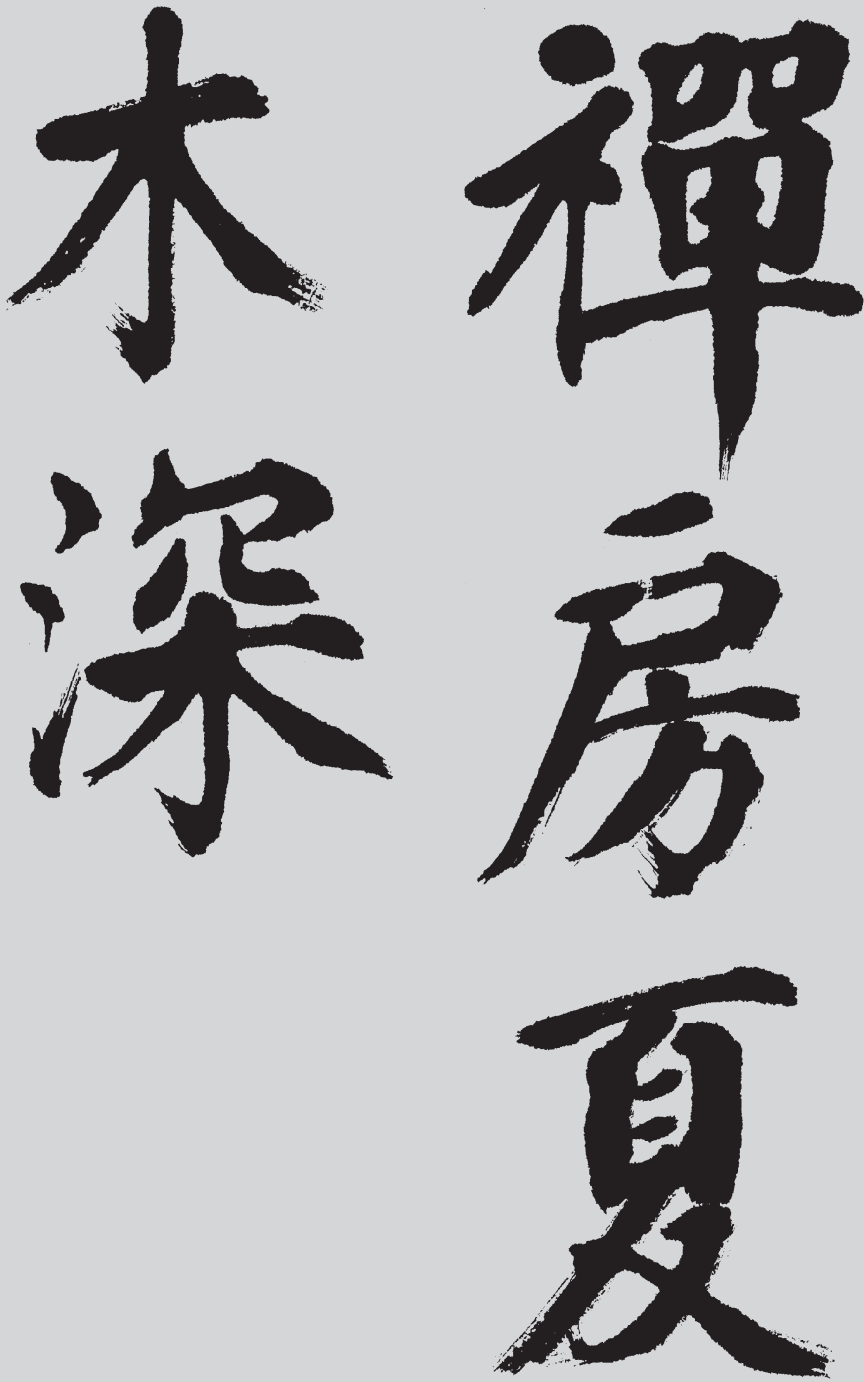 禪房夏
木深